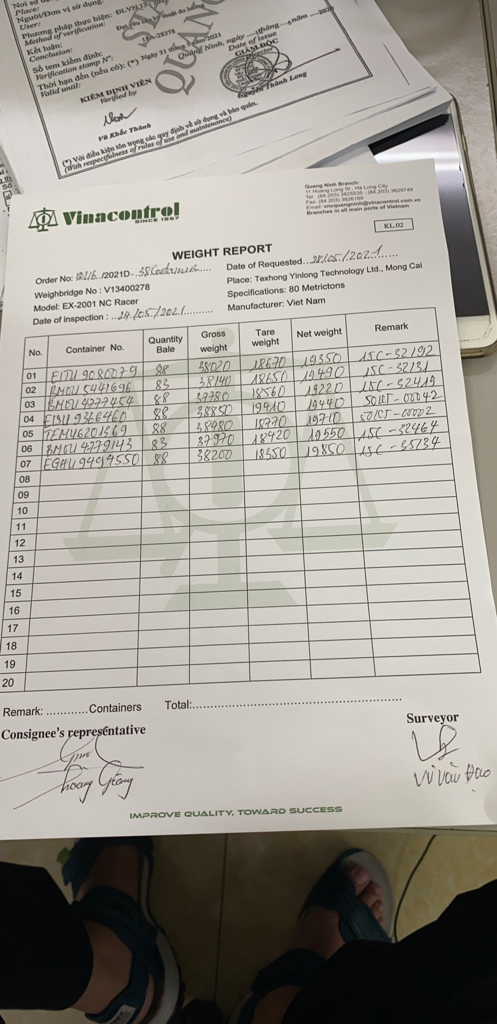 Nơi sử
Place:
Người/Đơn vị sử dụng.
User:
Phương pháp thực hiện: ĐLVN
Method of verification:
Kết luận:
Conclusion:
Số tem kiểm định:
Verification stamp Nº:
Thời hạn đến (nếu có): (*) Ngày 31 tháng
Valid until:
Quảng Ninh, ngày ....tháng....năm ....20
Date of issue
GIÁM ĐỐC
KIỂM ĐỊNH VIÊN
Verified by
Vũ Khắc Thành
Nguyễn Thành Long
(*) Với điều kiện tôn trọng các quy định về sử dụng và bảo quản.
(With respecifulness of rules of use and maintenance)
Vinacontrol
SINCE 1957
Quang Ninh Branch:
11 Hoang Long St., Ha Long City
Tel: (84.203) 3825535 - (84.203) 3629749
Fax: (84.203) 3826169
Email: vncquangninh@vinacontrol.com.vn
Branches in all main ports of Vietnam
KL.02
WEIGHT REPORT
Order No: /2021D- 38 Containers
Date of Requested: 28/05/2021
Weighbridge No : V13400278
Place: Texhong Yinlong Technology Ltd., Mong Cai
Model: EX-2001 NC Racer
Specifications: 80 Metrictons
Date of inspection : 29/05/2021
Manufacturer: Viet Nam
No. Container No. Quantity Bale Gross weight Tare weight Net weight Remark
01 EITU 9080079 88 38020 18670 19350 15C-32192
02 BMOU 5441696 83 38140 18650 19490 15C-32131
03 BMOU 4777454 88 37780 18560 19220 15C-32419
04 EISU 9346460 88 38850 19410 19440 50RT-00042
05 TEMU6201369 88 38480 18770 19710 50RT-00022
06 BMOU 4779143 83 37970 18420 19550 15C-32464
07 EGHU 9494550 88 38200 18350 19850 15C-35134
08
09
10
11
12
13
14
15
16
17
18
19
20
Remark: ............Containers Total:
Consignee's representative
Surveyor
Hoang Giang
Vi Văn Đạo
IMPROVE QUALITY, TOWARD SUCCESS